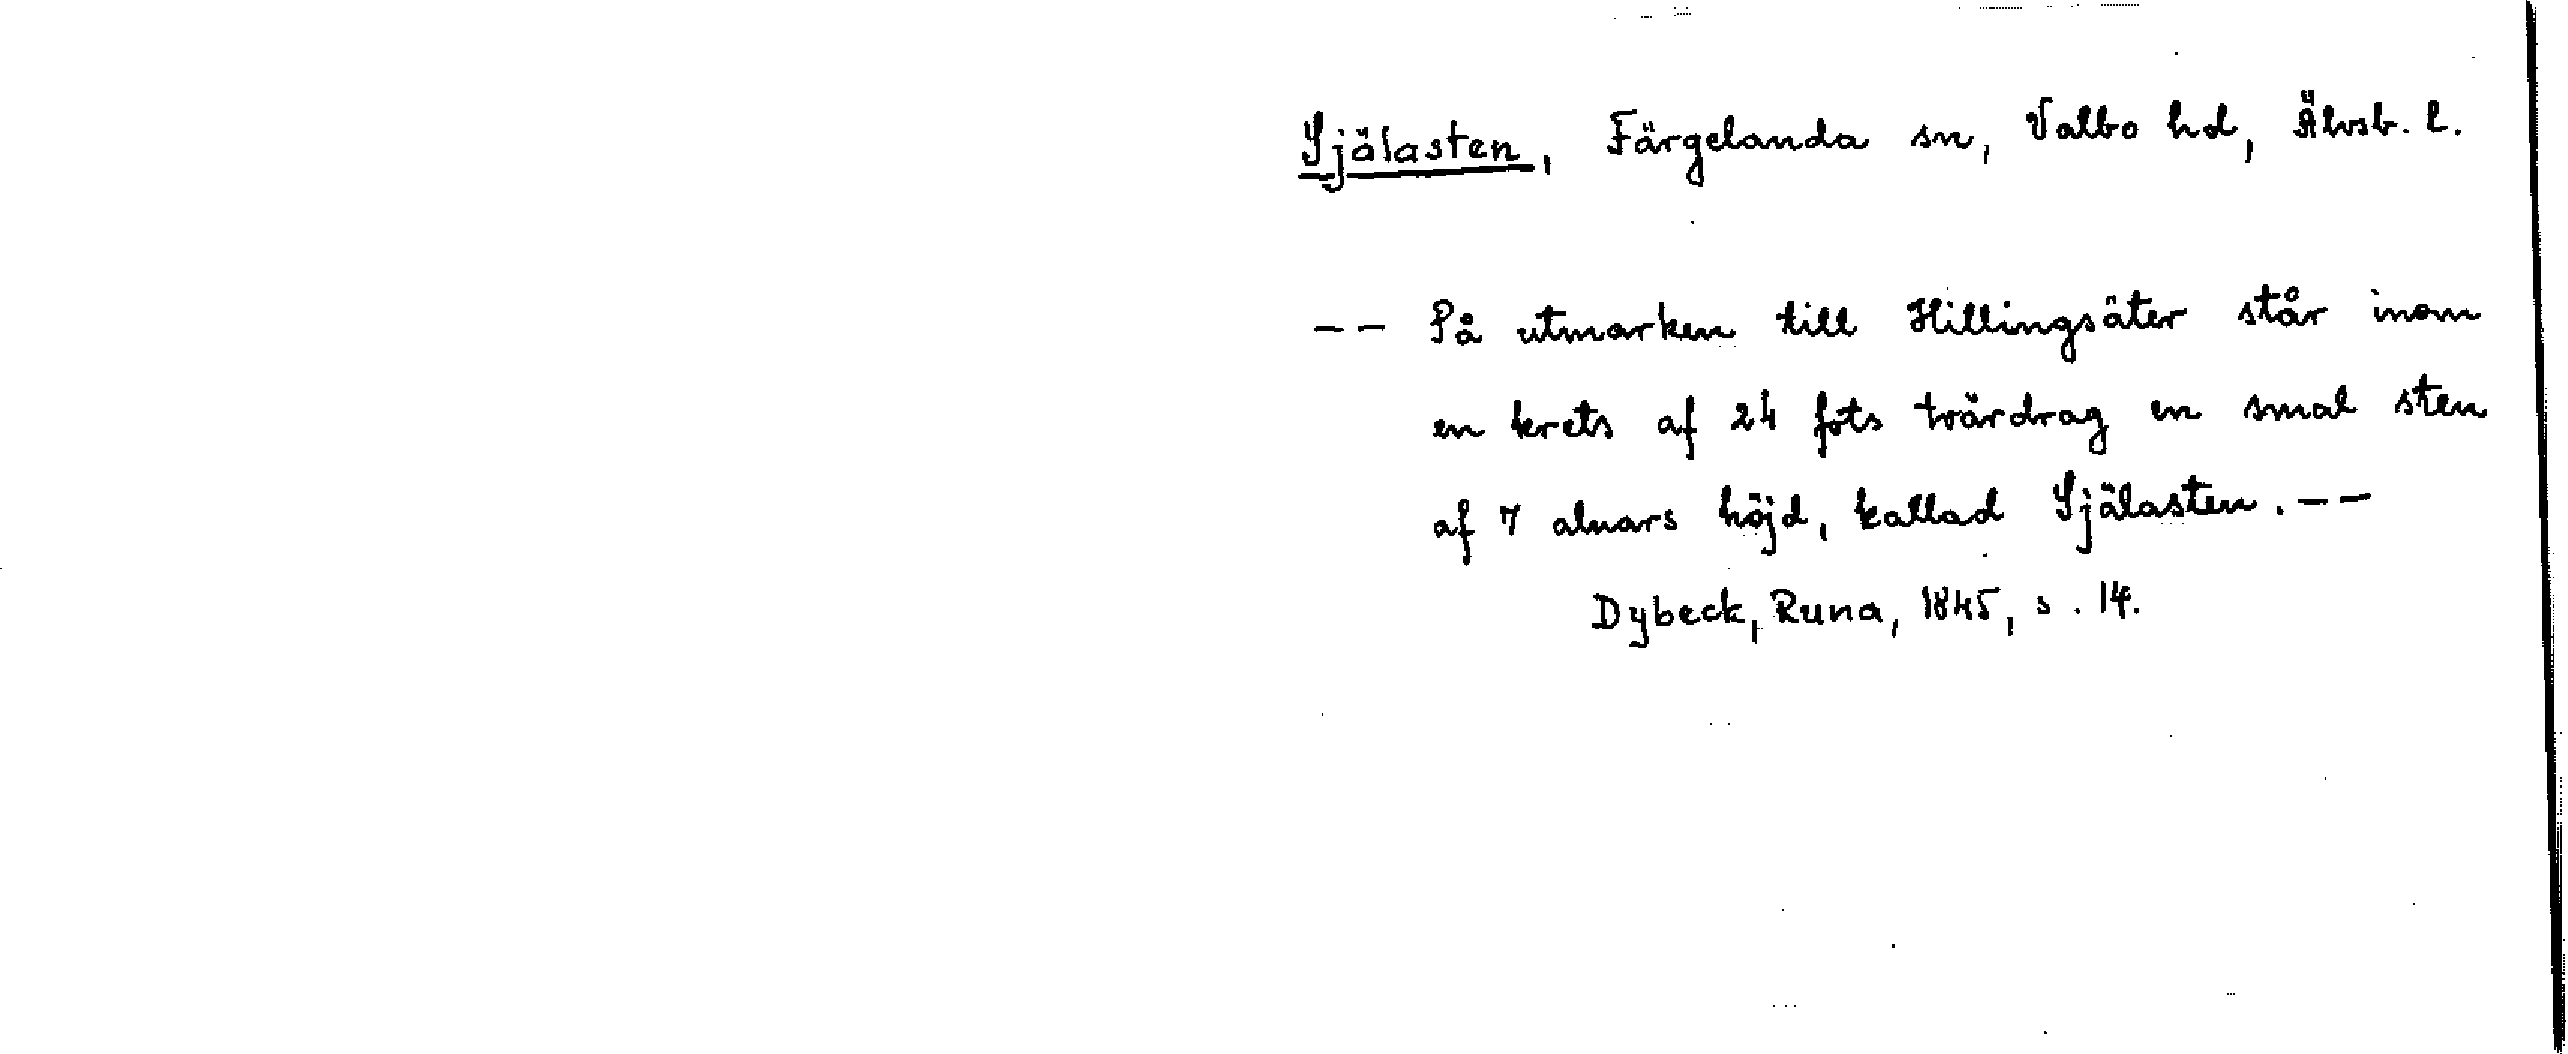 Själasten, Färgelanda sn, Valbo hd, Älvsb. l.
-- På utmarken till Hillingsäter står inom
en krets af 24 fots tvärdrag en smal sten
af 7 alnars höjd, kallad Själasten. --
Dybeck, Runa, 1845, s. 14.